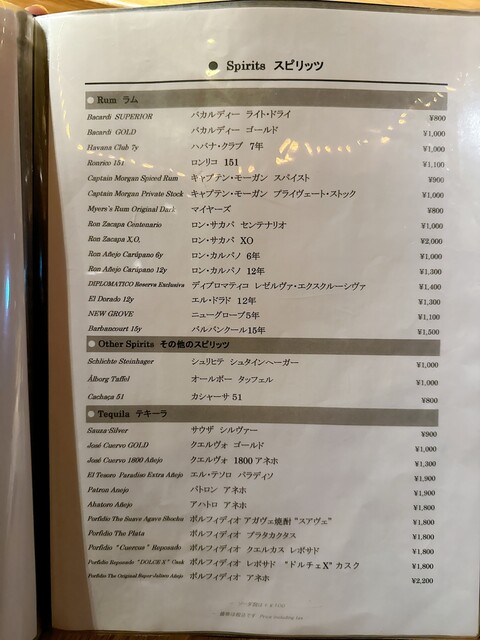 ● Spirits スピリッツ
● Rum ラム
Bacardi SUPERIOR バカルディー ライト・ドライ ¥800
Bacardi GOLD バカルディー ゴールド ¥1,000
Havana Club 7y ハバナ・クラブ 7年 ¥1,000
Ronrico 151 ロンリコ 151 ¥1,100
Captain Morgan Spiced Rum キャプテン・モーガン スパイスト ¥900
Captain Morgan Private Stock キャプテン・モーガン プライヴェート・ストック ¥1,000
Myers's Rum Original Dark マイヤーズ ¥800
Ron Zacapa Centenario ロン・サカパ センテナリオ ¥1,000
Ron Zacapa X.O. ロン・サカパ XO ¥2,000
Ron Añejo Carúpano 6y ロン・カルパノ 6年 ¥1,000
Ron Añejo Carúpano 12y ロン・カルパノ 12年 ¥1,300
DIPLOMATICO Reserva Exclusiva ディプロマティコ レゼルヴァ・エクスクルーシヴァ ¥1,400
El Dorado 12y エル・ドラド 12年 ¥1,300
NEW GROVE ニューグローブ5年 ¥1,100
Barbancourt 15y バルバンクール15年 ¥1,500
● Other Spirits その他のスピリッツ
Schlichte Steinhager シュリヒテ シュタインヘーガー ¥1,000
Ålborg Taffel オールボー タッフェル ¥1,000
Cachaça 51 カシャーサ 51 ¥800
● Tequila テキーラ
Sauza-Silver サウザ シルヴァー ¥900
José Cuervo GOLD クエルヴォ ゴールド ¥1,000
José Cuervo 1800 Añejo クエルヴォ 1800 アネホ ¥1,300
El Tesoro Paradiso Extra Añejo エル・テソロ パラディソ ¥1,900
Patron Anejo パトロン アネホ ¥1,900
Ahatoro Añejo アハトロ アネホ ¥1,800
Porfidio The Suave Agave Shochu ポルフィディオ アガヴェ焼酎 "スアヴェ" ¥1,800
Porfidio The Plata ポルフィディオ プラタカクタス ¥1,800
Porfidio "Cuercus" Reposado ポルフィディオ クエルカス レポサド ¥1,800
Porfidio Reposado "DOLCE X" Cask ポルフィディオ レポサド "ドルチェX" カスク ¥1,800
Porfidio The Original Super-Juliers Añejo ポルフィディオ アネホ ¥2,200